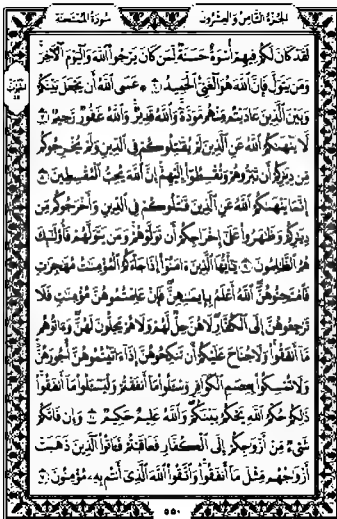 سُورَةُ المُمْتَحنَة
الجُزءُ الثَّامِنُ وَالعِشْرُون
لَقَدْ كَانَ لَكُمْ فِيهِمْ أُسْوَةٌ حَسَنَةٌ لِّمَن كَانَ يَرْجُوا۟ ٱللَّهَ وَٱلْيَوْمَ ٱلْـَٔاخِرَ
وَمَن يَتَوَلَّ فَإِنَّ ٱللَّهَ هُوَ ٱلْغَنِىُّ ٱلْحَمِيدُ ٦ ۞ عَسَى ٱللَّهُ أَن يَجْعَلَ بَيْنَكُمْ
وَبَيْنَ ٱلَّذِينَ عَادَيْتُم مِّنْهُم مَّوَدَّةً وَٱللَّهُ قَدِيرٌ وَٱللَّهُ غَفُورٌ رَّحِيمٌ ٧
لَّا يَنْهَىٰكُمُ ٱللَّهُ عَنِ ٱلَّذِينَ لَمْ يُقَٰتِلُوكُمْ فِى ٱلدِّينِ وَلَمْ يُخْرِجُوكُم
مِّن دِيَٰرِكُمْ أَن تَبَرُّوهُمْ وَتُقْسِطُوٓا۟ إِلَيْهِمْ إِنَّ ٱللَّهَ يُحِبُّ ٱلْمُقْسِطِينَ ٨
إِنَّمَا يَنْهَىٰكُمُ ٱللَّهُ عَنِ ٱلَّذِينَ قَٰتَلُوكُمْ فِى ٱلدِّينِ وَأَخْرَجُوكُم مِّن
دِيَٰرِكُمْ وَظَٰهَرُوا۟ عَلَىٰٓ إِخْرَاجِكُمْ أَن تَوَلَّوْهُمْ وَمَن يَتَوَلَّهُمْ فَأُو۟لَٰٓئِكَ
هُمُ ٱلظَّٰلِمُونَ ٩ يَٰٓأَيُّهَا ٱلَّذِينَ ءَامَنُوٓا۟ إِذَا جَآءَكُمُ ٱلْمُؤْمِنَٰتُ مُهَٰجِرَٰتٍ
فَٱمْتَحِنُوهُنَّ ٱللَّهُ أَعْلَمُ بِإِيمَٰنِهِنَّ فَإِنْ عَلِمْتُمُوهُنَّ مُؤْمِنَٰتٍ فَلَا
تَرْجِعُوهُنَّ إِلَى ٱلْكُفَّارِ لَا هُنَّ حِلٌّ لَّهُمْ وَلَا هُمْ يَحِلُّونَ لَهُنَّ وَءَاتُوهُم
مَّآ أَنفَقُوا۟ وَلَا جُنَاحَ عَلَيْكُمْ أَن تَنكِحُوهُنَّ إِذَآ ءَاتَيْتُمُوهُنَّ أُجُورَهُنَّ
وَلَا تُمْسِكُوا۟ بِعِصَمِ ٱلْكَوَافِرِ وَسْـَٔلُوا۟ مَآ أَنفَقْتُمْ وَلْيَسْـَٔلُوا۟ مَآ أَنفَقُوا۟
ذَٰلِكُمْ حُكْمُ ٱللَّهِ يَحْكُمُ بَيْنَكُمْ وَٱللَّهُ عَلِيمٌ حَكِيمٌ ١٠ وَإِن فَاتَكُمْ
شَىْءٌ مِّنْ أَزْوَٰجِكُمْ إِلَى ٱلْكُفَّارِ فَعَاقَبْتُمْ فَـَٔاتُوا۟ ٱلَّذِينَ ذَهَبَتْ
أَزْوَٰجُهُم مِّثْلَ مَآ أَنفَقُوا۟ وَٱتَّقُوا۟ ٱللَّهَ ٱلَّذِىٓ أَنتُم بِهِۦ مُؤْمِنُونَ ١١
٥٥٠